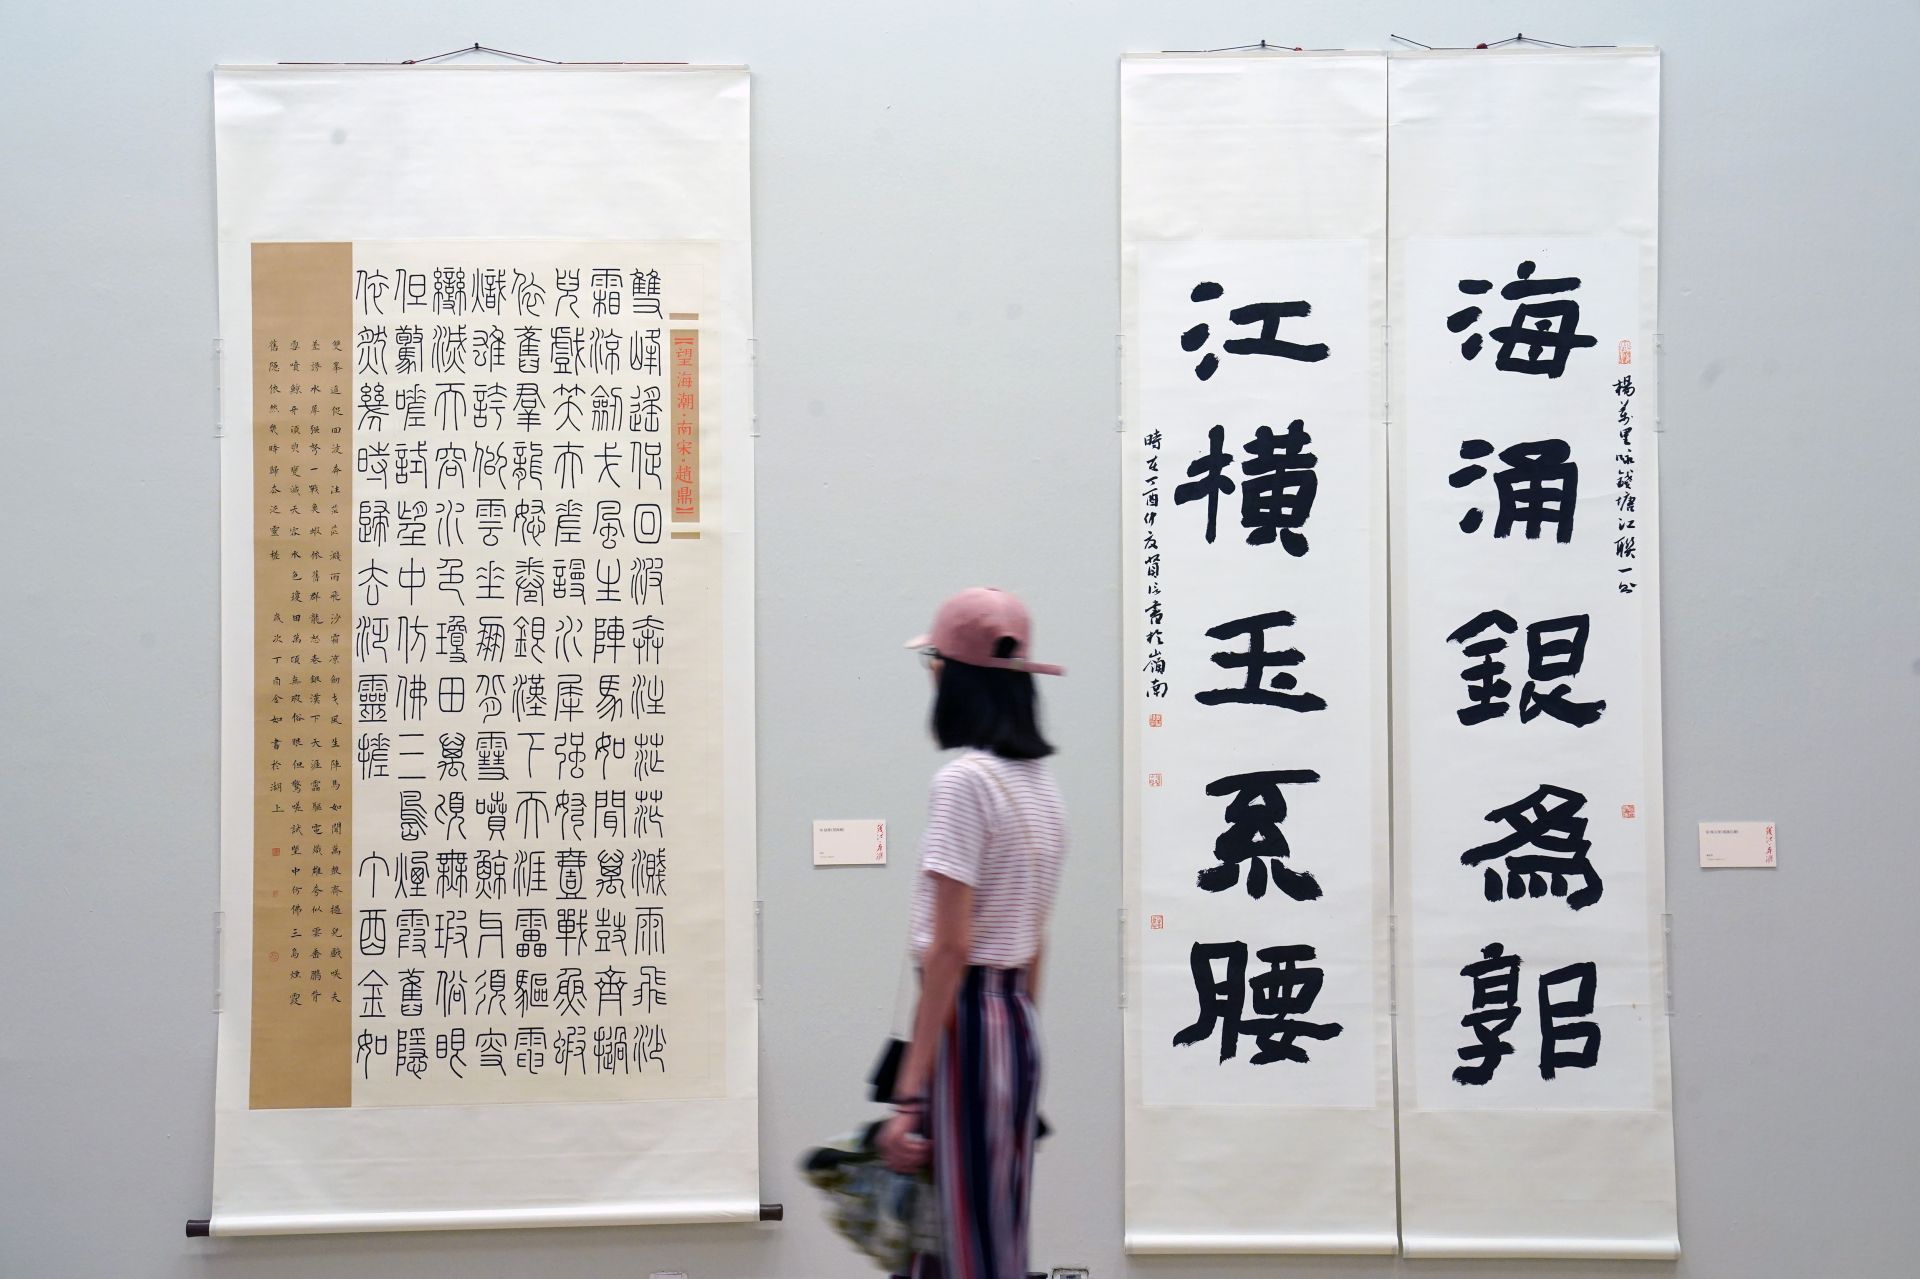 楊萬里詠錢塘江聯一
海涌銀爲郭
江橫玉系腰
時在丁酉仲夏賢信書於嶺南
【望海潮·南宋·趙鼎】
雙峰遙促回波奔注茫茫濺雨飛沙
霜涼劍戈風生陣馬如聞萬鼓齊撾
兒戲笑夫差謾水犀强弩壹戰魚蝦
依舊群龍怒卷銀漢下天涯雷驅電
熾雄誇似雲垂鵬背雪噴鯨牙須臾
變滅天容水色瓊田萬頃無瑕俗眼
但驚嗟試望中仿佛三島煙霞舊隱
依然幾時歸去泛靈槎 丁酉金如
雙峯遙促回波奔注茫茫濺雨飛沙霜凉劍戈風生陣馬如聞萬鼓齊撾兒戲咲夫
差謾水犀强弩一戰魚蝦依舊群龍怒卷銀漢下天涯雷驅電熾雄夸似雲垂鵬背
雪噴鯨牙須臾變滅天容水色瓊田萬頃無瑕俗眼但驚嗟試望中仿佛三島煙霞
舊隱依然幾時歸去泛靈槎 歲次丁酉金如書於湖上